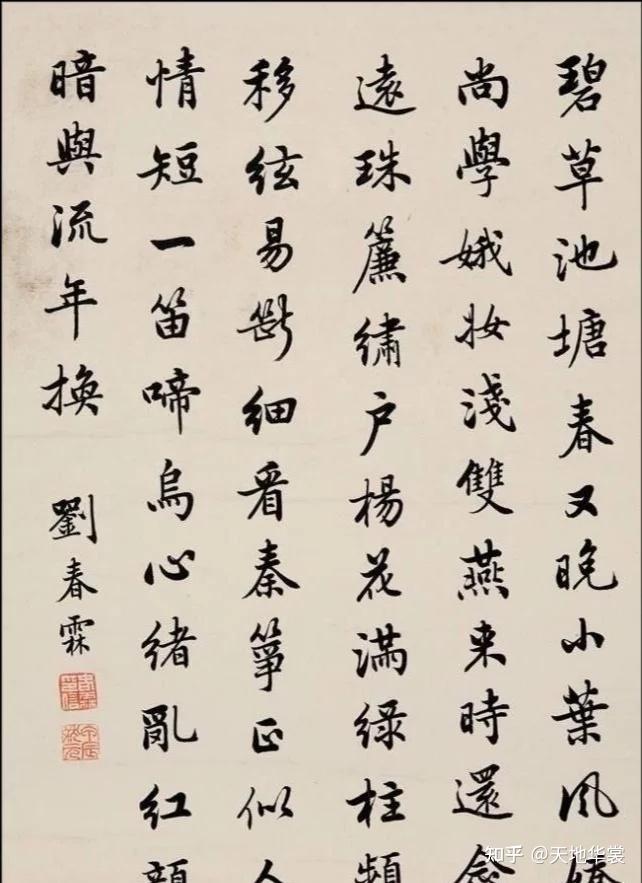 碧草池塘春又晚小葉風嬌
尚學娥妝淺雙燕来時還念
遠珠簾繡户楊花滿綠柱頻
移絃易斷細看秦箏正似人
情短一笛啼烏心緒亂紅顏
暗與流年換
劉春霖
知乎 @天地华裳